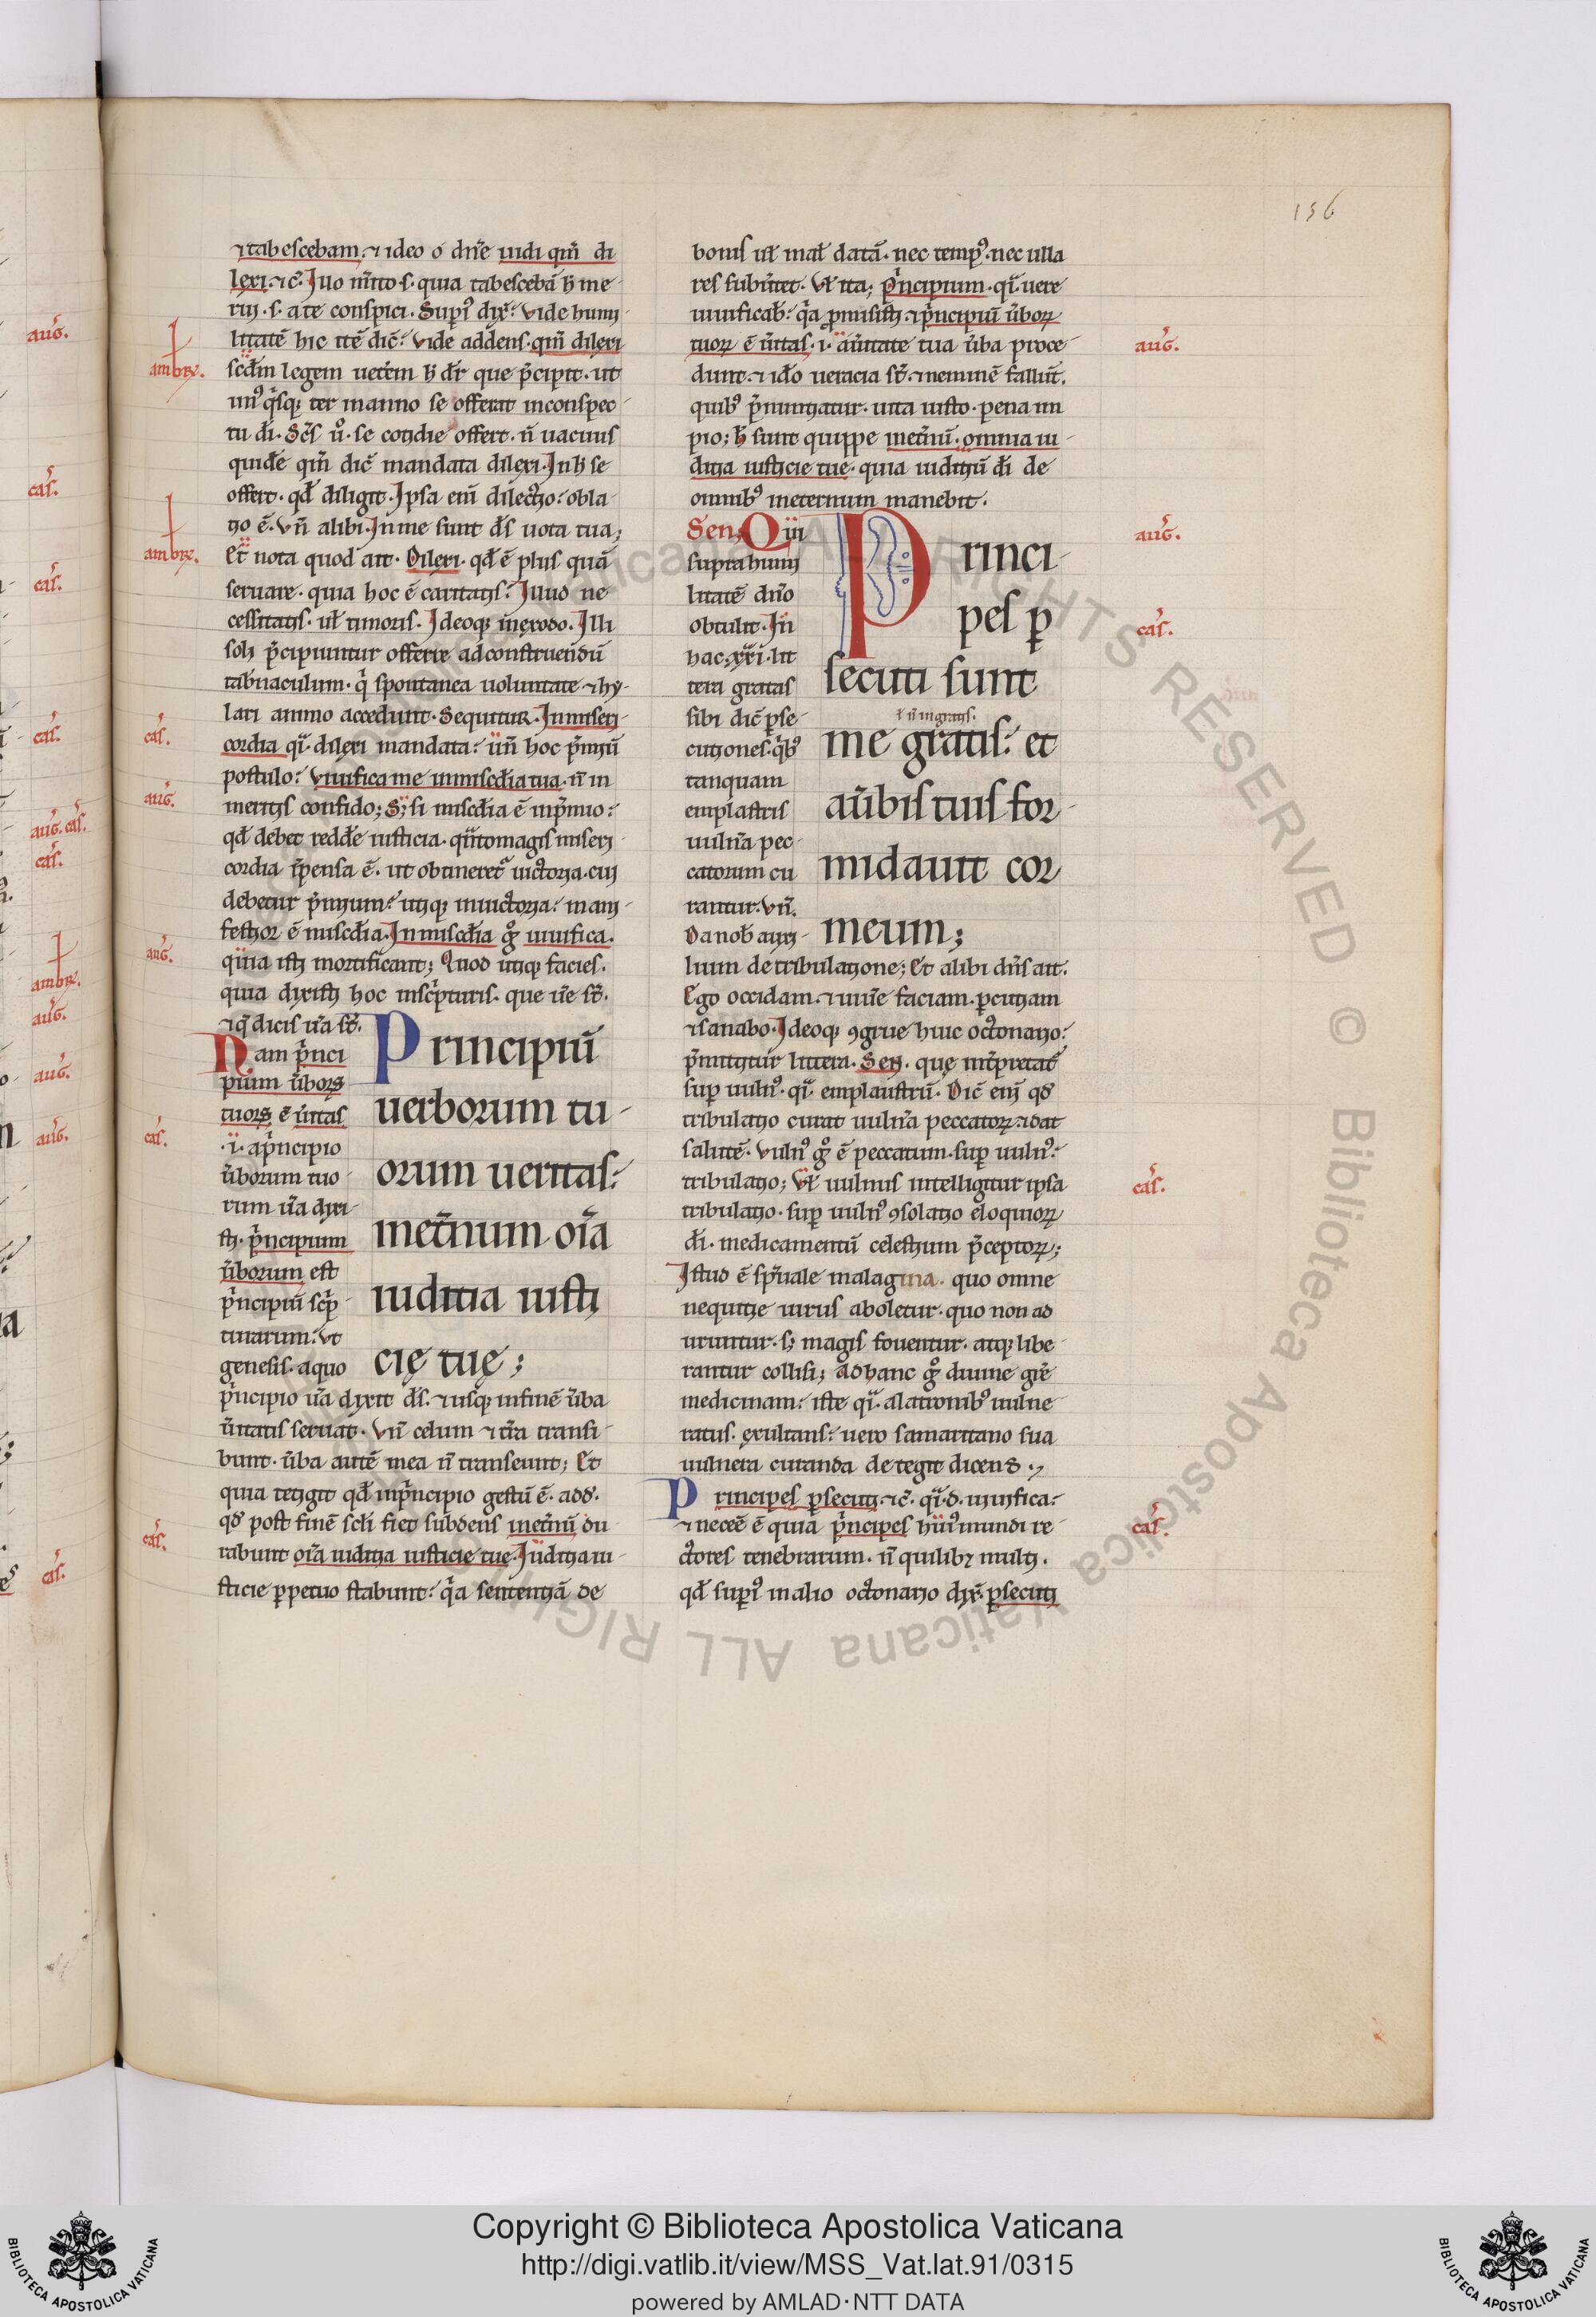 156
⁊tabescebam. ⁊ ideo o dn̄e uidi qm̄ di
lexi. ⁊c̄. Iuo mitto .s. quia tabescebā h̄ me
rui .s. a te conspici. Supi᷒ dix̄. Vide humi
litatē hic itē dic̄. Vide addens. qm̄ dilexi
scd̄m legem uetem h̄ dr̄ que p̄cipit. ut
un᷒ qͥsqꝫ ter in anno se offerat in conspec
tu dī. Sc̄s u͛o. se cotidie offert. n̄ uacuus
quidē qm̄ dic̄ mandata dilexi. In h̄ se
offert. qd̄ diligit. Ipsa eni dilectio. obla
tio ē. Vn̄ alibi. In me sunt ds̄ uota tua;
Et nota quod ait. Dilexi. qd̄ ē plus quā
seruare. quia hoc ē caritatis. Illud ne
cessitatis. ul̄ timoris. Ideoqꝫ in exodo. Illi
soli p̄cipiuntur offerre ad construendū
tab̄naculum. qͥ spontanea uoluntate ⁊ hy
lari animo accedunt. Sequitur. In miseri
cordia qͣ. dilexi mandata. un̄ hoc p̄miū
postulo. Viuifica me in miscd̄ia tua. n̄ in
meritis confido; Sꝫ si miscd̄ia ē in p̄mio.
qd̄ debet redde iusticia. qn̄to magis miseri
cordia īpensa ē. ut obtineret᷑ uictoria. cui
debetur p̄mium. utiqꝫ in uictoria. mani
festior ē miscd̄ia. In miscd̄ia gͦ uiuifica.
quia isti mortificant; Quod utiqꝫ facies.
quia dixisti hoc in scͥpturis. que ue̅ st̄.
⁊ qͣ dicis ūa st̄.
Nam pͥnci
pium ūboꝝ
tuoꝝ ē ūitas
.i. a pͥncipio
ūborum tuo
rum ūa dixi
sti. pͥncipium
ūborum est
pͥncipiū scͥp
turarum. ut
genesis. a quo
Principiū
uerborum tu
orum ueritas.
in et̄num oīa
iuditia iusti
cię tuę;
pͥncipio ūa dixit ds̄. ⁊ usqꝫ in finē ūba
ūitatis seruat. Vn̄ celum ⁊ tr̄a transi
bunt. ūba autē mea n̄ transeunt; Et
quia tetigit qd̄ in pͥncipio gestū ē. add̄.
qd̄ post finē scl̄i fiet subdens in et̄nū du
rabunt oīa iuditia iusticie tue. Iuditia iu
sticie ꝑpetuo stabunt. qͣ sententiā de
bonis ul̄ mal̄ datā. nec temp᷒. nec ulla
res subūtet. Vl̄ ita; Pͥncipium. qͣ. uere
uiuificab̄. qͣ promisisti. ⁊ pͥncipiū ūboꝝ
tuoꝝ ē ūitas .i. a ūitate tua ūba proce
dunt. ⁊ iđo ueracia st̄. ⁊ neminē fallūt.
quib᷒ p̄nuntiatur. uita iusto. pena im
pio; h̄ sunt quippe in et̄nū. omnia iu
ditia iusticie tue. quia iuditiū dī de
omnib᷒ in eternum manebit.
Sen; Qui
supra humi
litatē dn̄o
obtulit. In
hac .xxi. lit
tera gratas
sibi dic̄ ꝑse
cutiones. qͥb᷒
tanquam
emplastris
uulnͣa pec
catorum cu
rantur. Vn̄.
Da nob̄ auxi
Princi
pes ꝑ
secuti sunt
ł n̄ ingratis.
me gratis. et
a ūbis tuis for
midauit cor
meum;
lium de tribulatione; Et alibi dn̄s ait.
Ego occidam. ⁊ uiue̅ faciam. ꝑcutiam
⁊ sanabo. Ideoqꝫ ꝯgrue huic octonario.
p̄mittitur littera. Sen. quę int̄pretat᷑
sup uuln᷒. qͣ. emplaustrū. Dic̄ eni qd̄
tribulatio curat uulnͣa peccatoꝝ. ⁊ dat
salutē. Vuln᷒ gͦ ē peccatum. sup uuln᷒.
tribulatio; Vl̄ uulnus intelligitur ipsa
tribulatio. sup uuln᷒ ꝯsolatio eloquioꝝ
dī. medicamentū celestium p̄ceptoꝝ;
Istud ē spūale malagma. quo omne
nequitie uirus aboletur. quo non ad
uruntur. sꝫ magis fouentur. atqꝫ libe
rantur collisi; ad hanc gͦ diuine grē
medicinam. iste qͣ. a latronib᷒ uulne
ratus. exultans. uero samaritano sua
uulnera curanda detegit dicens.
Principes ꝑsecuti. ⁊c̄. qͣ.d. uiuifica.
⁊ necee̅ ē quia pͥncipes hui᷒ mundi re
ctores tenebrarum. n̄ quilibꝫ multi.
qd̄ supi᷒ in alio octonario dix̄. ꝑsecuti
aug̅.
ambr̄.
cas̄.
ambr̄.
cas̄.
cas̄.
cas̄.
aug̅.
cas̄.
aug̅. cas̄.
cas̄.
aug̅.
ambr̄.
aug̅.
aug̅.
aug̅.
cas̄.
cas̄.
cas̄.
aug̅.
aug̅.
cas̄.
cas̄.
cas̄.
Biblioteca Apostolica Vaticana ALL RIGHTS RESERVED ©
Copyright © Biblioteca Apostolica Vaticana
http://digi.vatlib.it/view/MSS_Vat.lat.91/0315
powered by AMLAD·NTT DATA
BIBLIOTECA APOSTOLICA VATICANA
BIBLIOTECA APOSTOLICA VATICANA